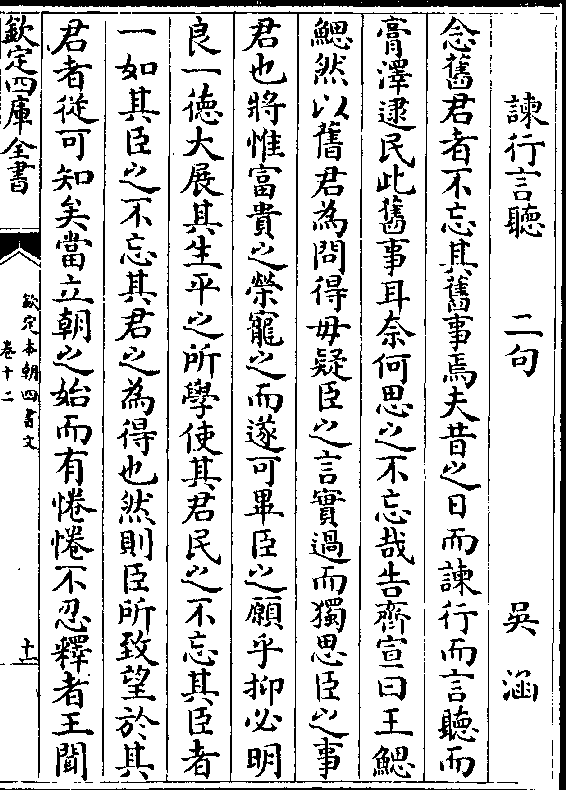 諫行言聽 二句 吳涵
念舊君者不忘其舊事焉夫昔之日而諫行而言聽而
膏澤逮民此舊事耳奈何思之不忘哉告齊宣曰王鰓
鰓然以舊君為問得毋疑臣之言實過而獨思臣之事
君也將惟富貴之榮寵之而遂可畢臣之願乎抑必明
良一徳大展其生平之所學使其君民之不忘其臣者
一如其臣之不忘其君之為得也然則臣所致望於其
君者從可知矣當立朝之始而有惓惓不忍釋者王聞
欽定四庫全書
欽定本朝四書文
卷十二
十一